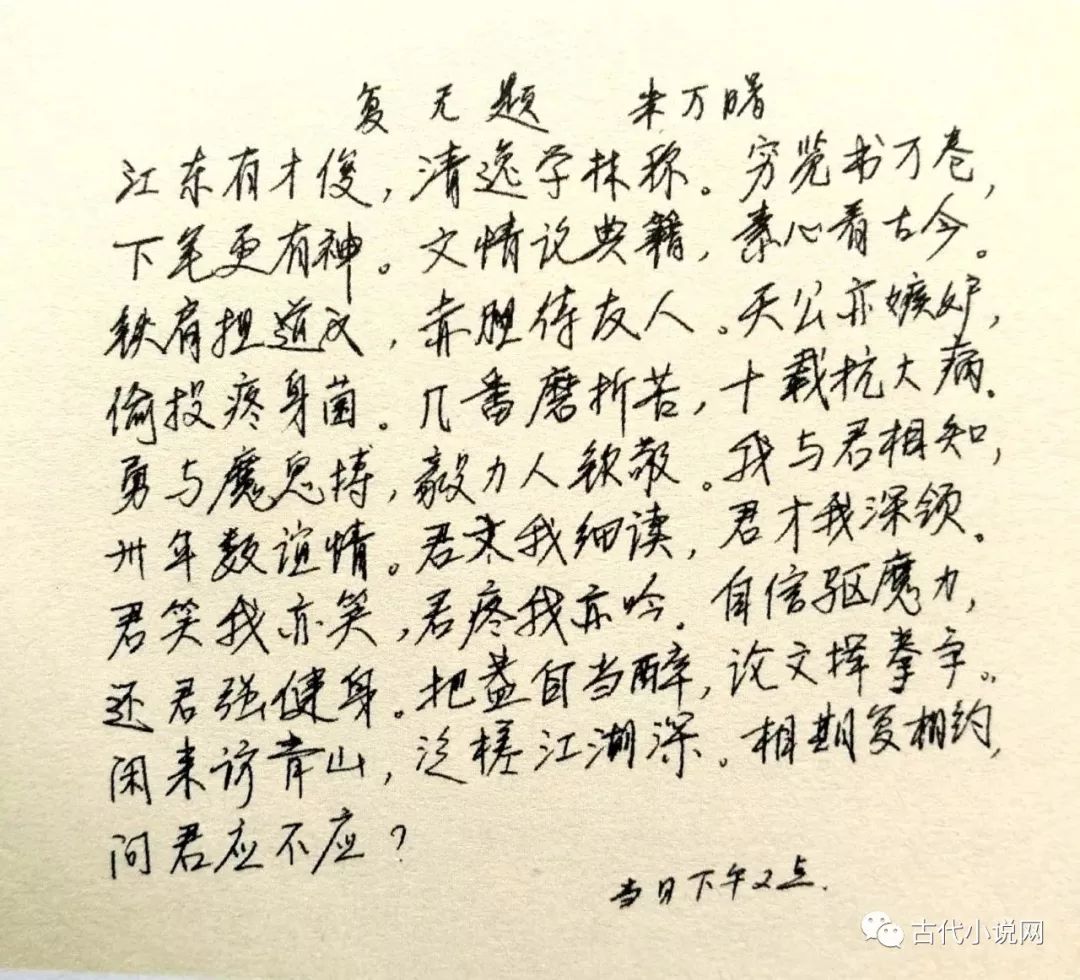 复无题 朱万曙
江东有才俊，清逸学林称。穷览书万卷，
下笔更有神。文情说典籍，素心看古今。
铁肩担道义，赤胆待友人。天公亦嫉妒，
偷投疼身菌。几番磨折苦，十载抗大病。
勇与魔鬼搏，毅力人钦敬。我与君相知，
卅年数谊情。君文我细读，君才我深领。
君笑我亦笑，君疼我亦吟。自信驱魔力，
还君强健身。把盏自当醉，论文挥拳争。
闲来访青山，泛槎江湖深。相期复相约，
问君应不应？
当日下午2点.
古代小说网